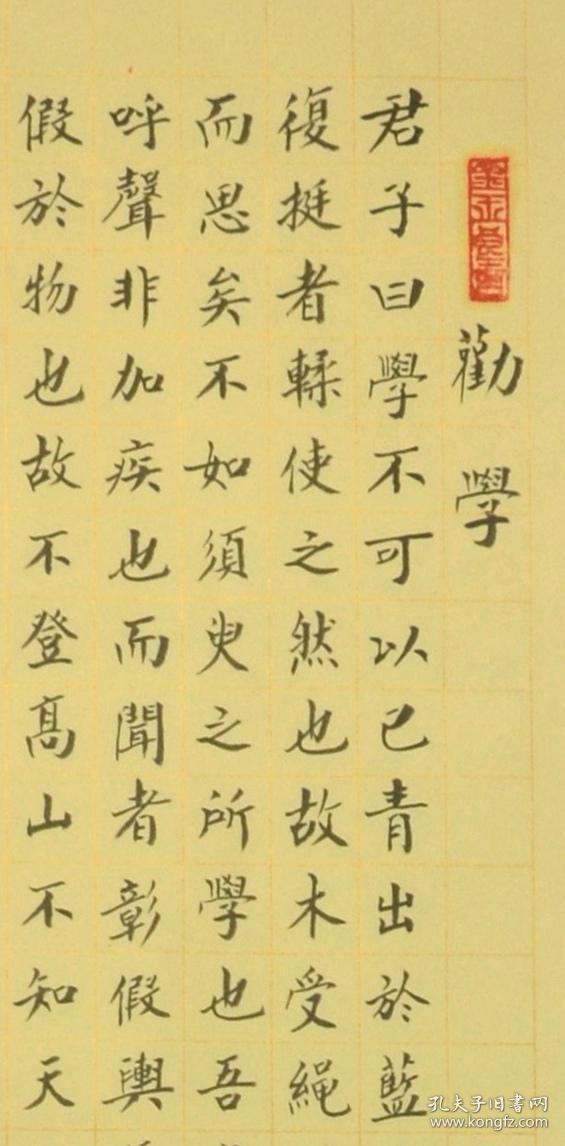 勸學
君子曰學不可以已青出於藍
復挺者輮使之然也故木受繩
而思矣不如須臾之所學也吾
呼聲非加疾也而聞者彰假輿
假於物也故不登高山不知天
孔夫子旧书网
www.kongfz.com